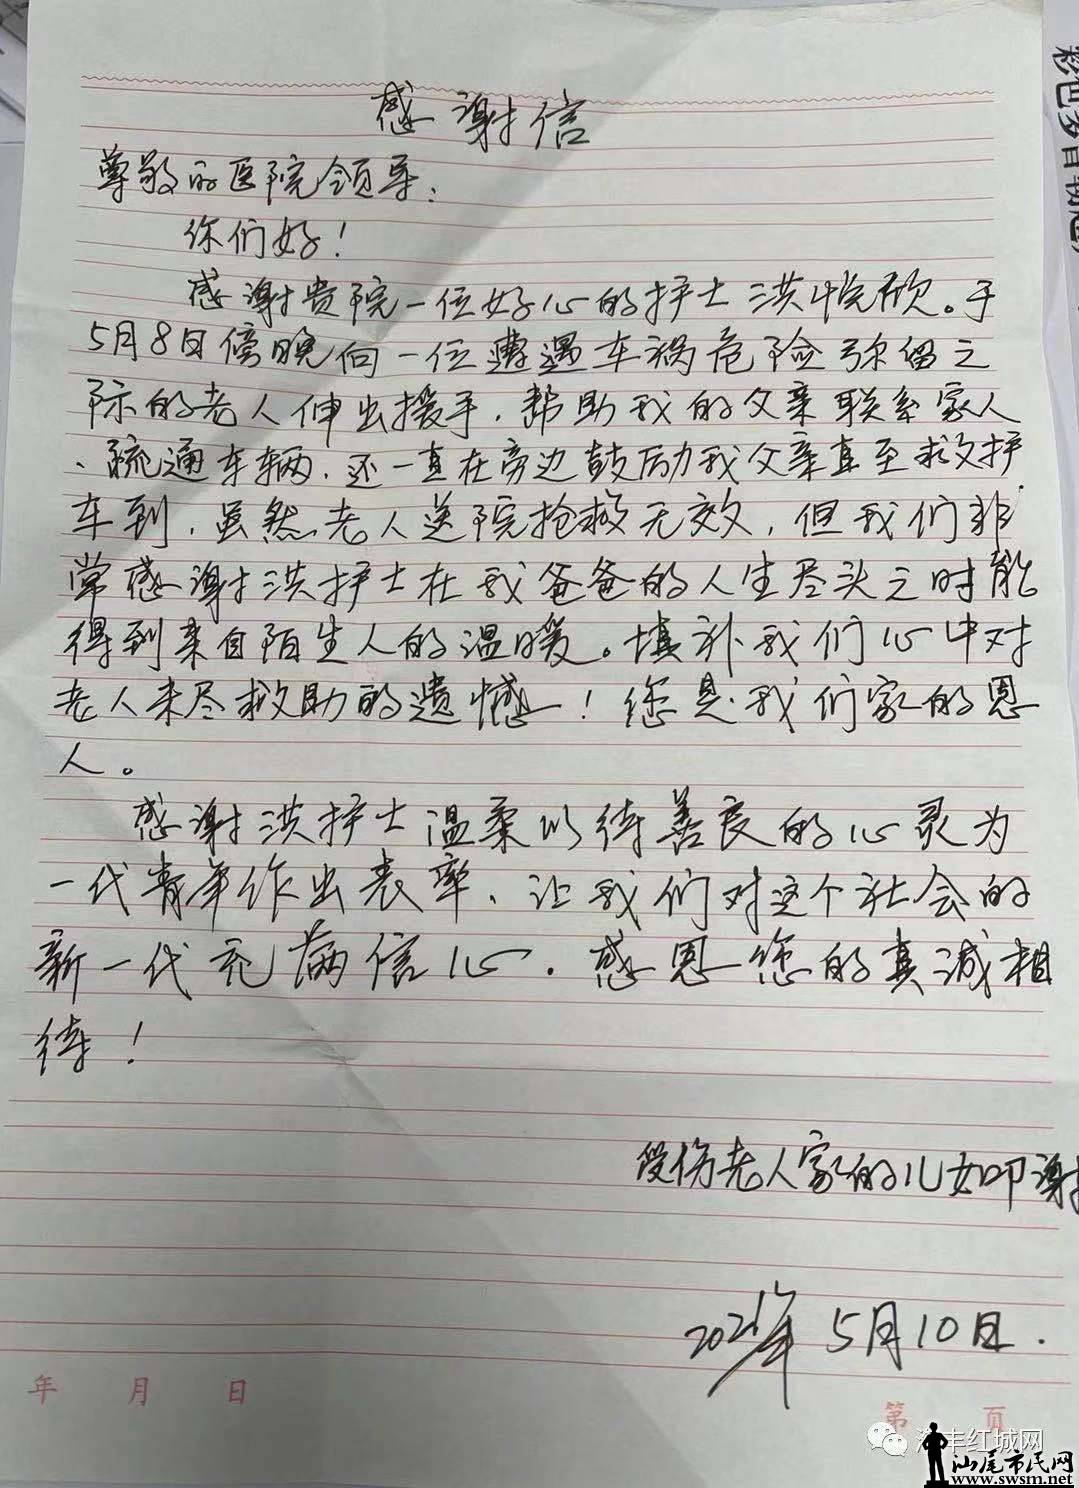 感谢信
尊敬的医院领导：
你们好！
感谢贵院一位好心的护士洪悦欣。于
5月8日傍晚向一位遭遇车祸危险弥留之
际的老人伸出援手，帮助我的父亲联系家人
、疏通车辆，还一直在旁边鼓励我父亲直至救护
车到，虽然老人送院抢救无效，但我们非
常感谢洪护士在我爸爸的人生尽头之时能
得到来自陌生人的温暖。填补我们心中对
老人未尽救助的遗憾！您是我们家的恩
人。
感谢洪护士温柔以待善良的心灵为
一代青年作出表率、让我们对这个社会的
新一代充满信心．感恩您的真诚相
待！
受伤老人家的儿女叩谢
2021年5月10日．
年 月 日
第 页
丰红城网
汕尾市民网
www.swsm.net